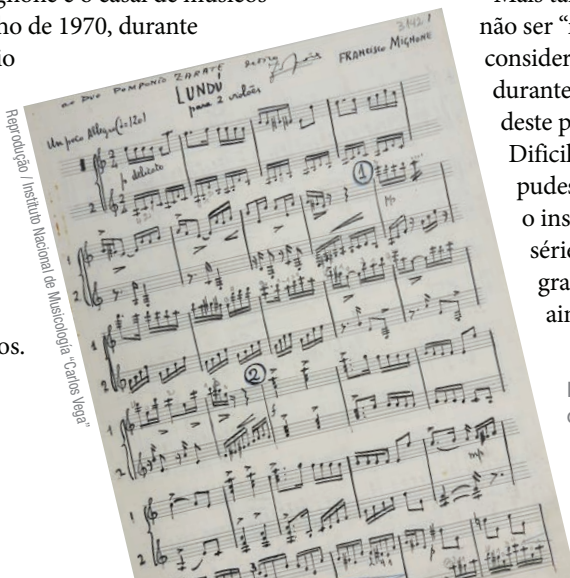 gnone e o casal de músicos
ho de 1970, durante
io
os.
Reprodução / Instituto Nacional de Musicología “Carlos Vega”
3142
ao Duo POMPONIO ZARATE
FRANCISCO MIGNONE
LUNDÚ
para 2 violões
Un poco Allegro (♩=120)
1
p delicato
2
1
Mp
1
2
1
2
2
1
2
mp
1
2
p
Mais tar
não ser “
consider
durante
deste p
Dificil
pudes
o ins
série
gra
ain